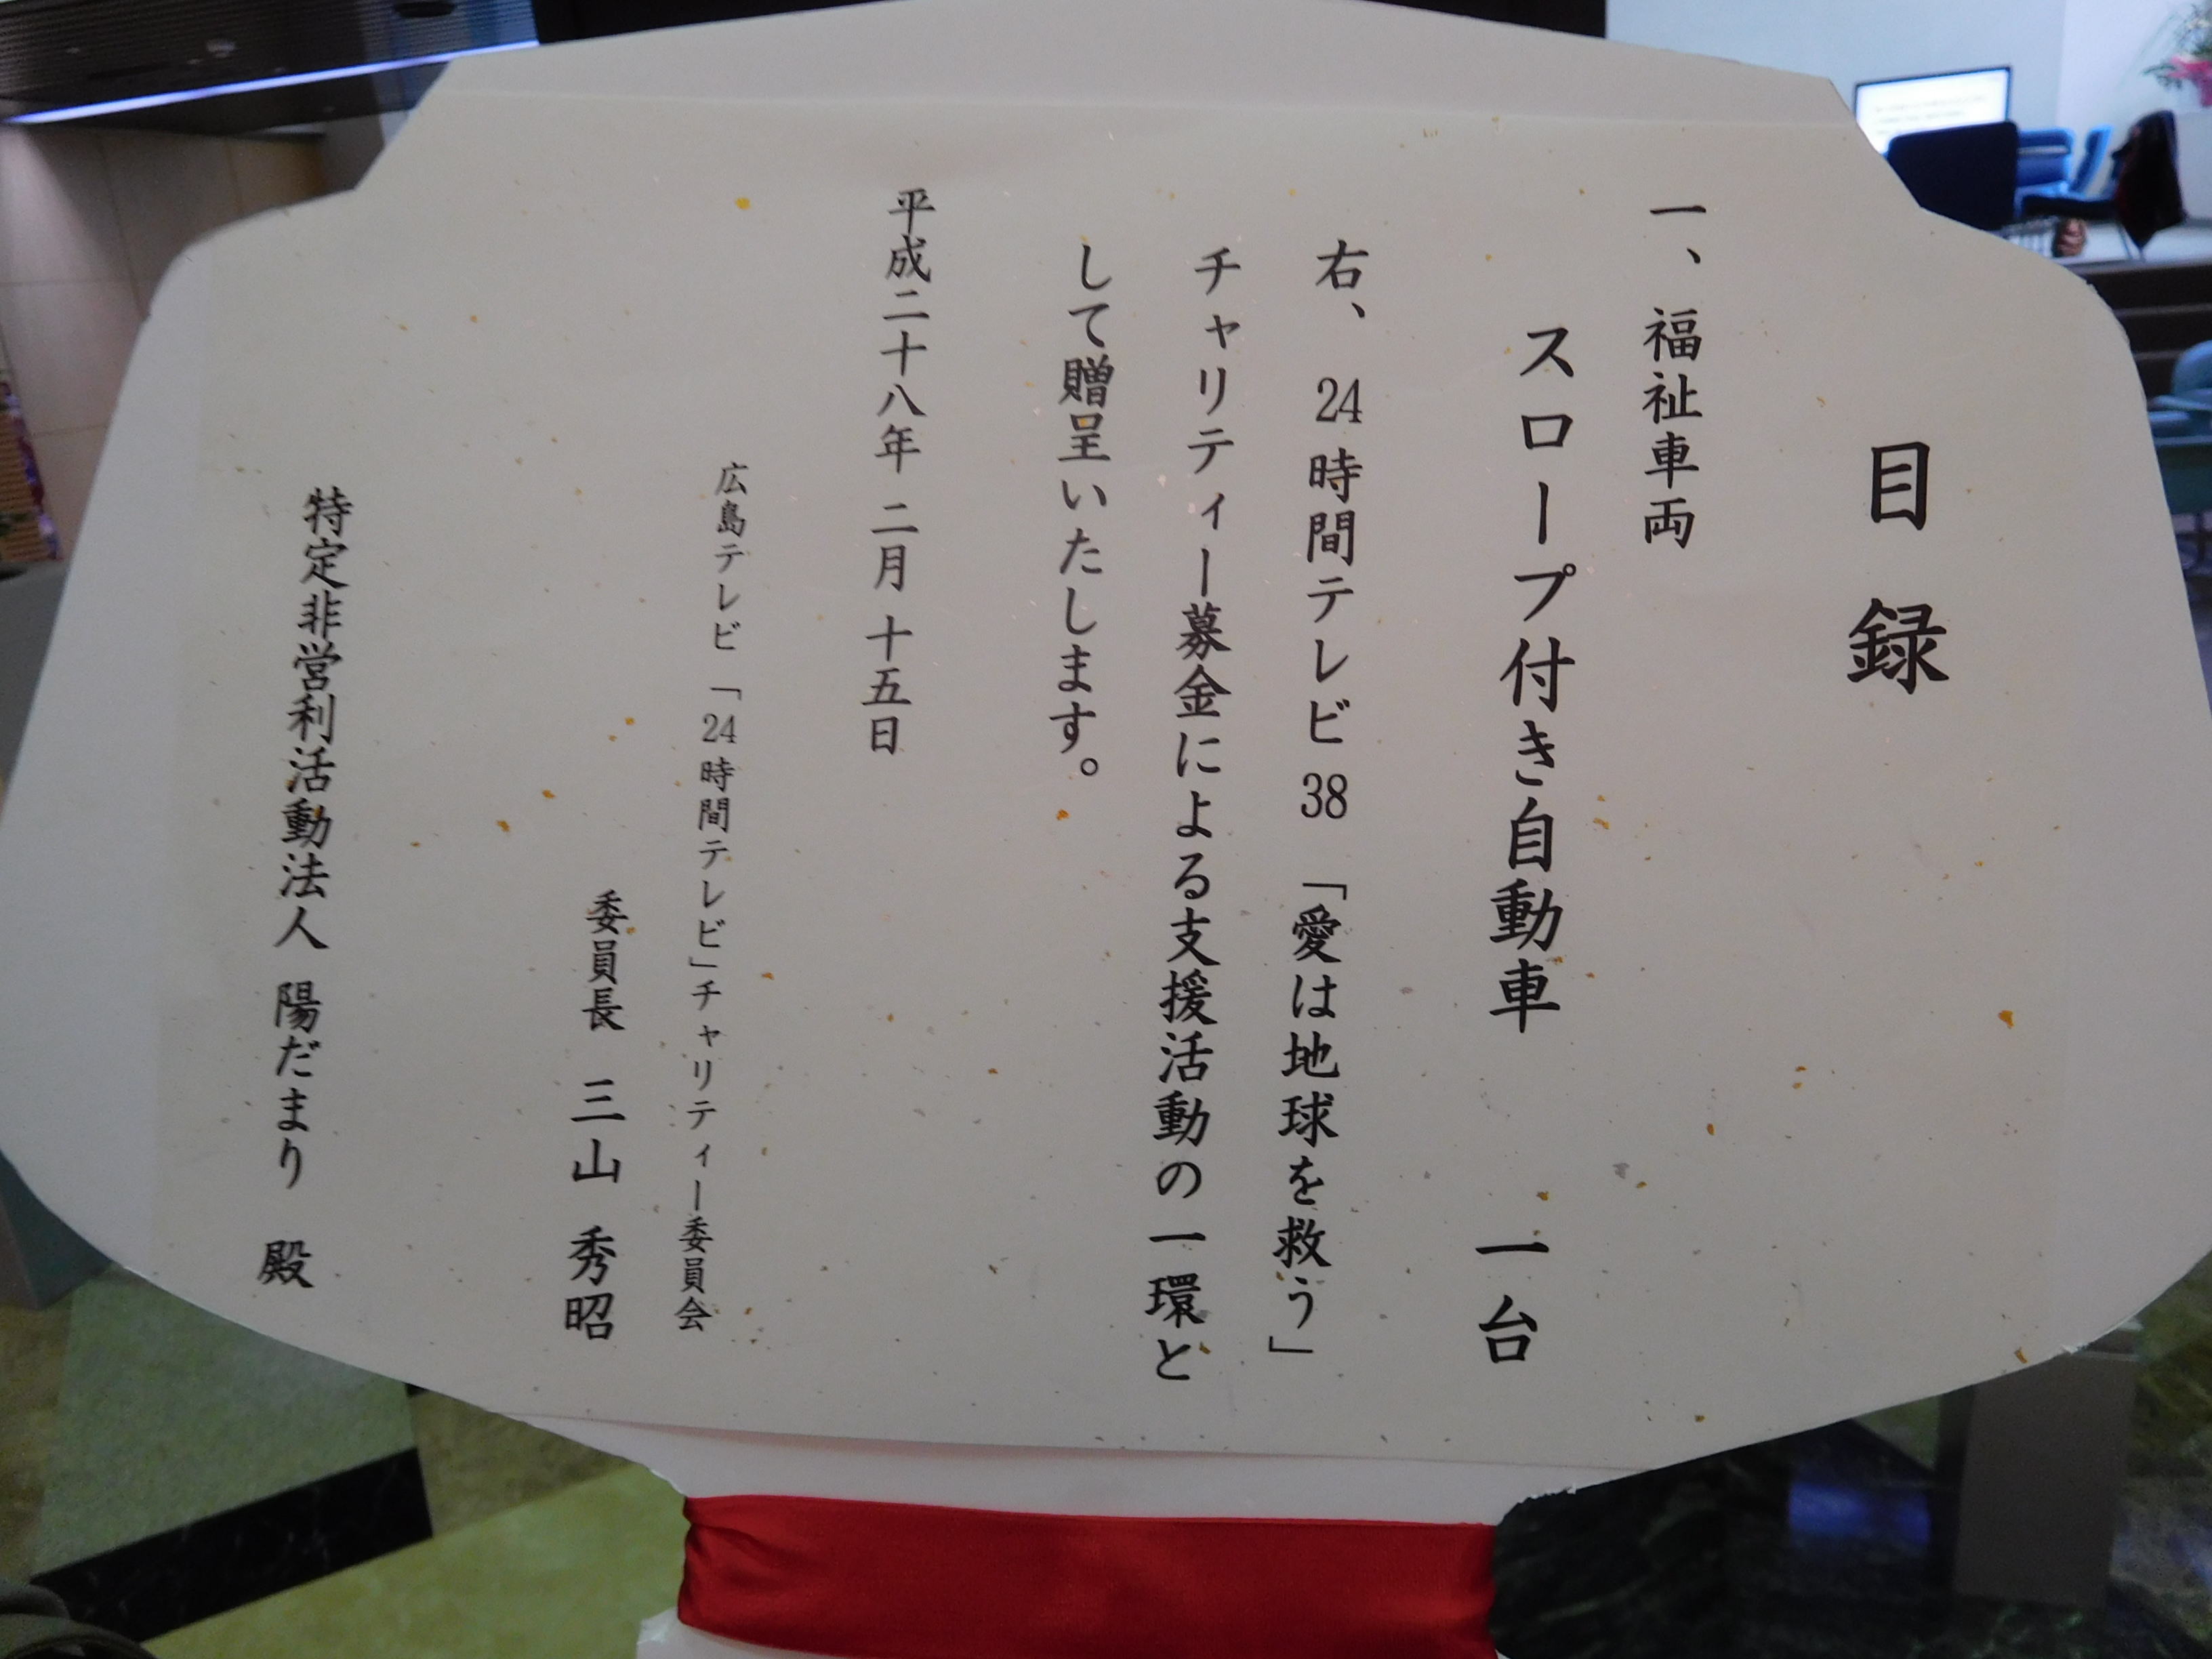 目録
一、福祉車両
スロープ付き自動車　一台
右、24時間テレビ38「愛は地球を救う」
チャリティー募金による支援活動の一環と
して贈呈いたします。
平成二十八年 二月 十五日
広島テレビ「24時間テレビ」チャリティー委員会
委員長　三山　秀昭
特定非営利活動法人 陽だまり　殿